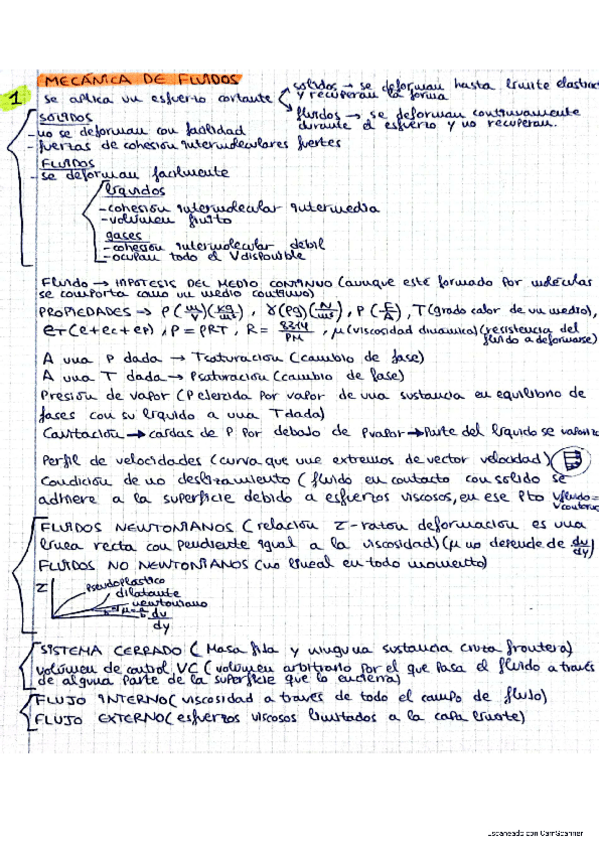 MECÁNICA DE FLUIDOS
1 se aplica un esfuerzo cortante
solidos → se deforman hasta límite elastico
y recuperan la forma
fluidos → se deforman continuamente
durante el esfuerzo y no recuperan.
SOLIDOS
- no se deforman con facilidad
- fuerzas de cohesión intermoleculares fuertes
FLUIDOS
- se deforman facilmente
líquidos
- cohesión intermolecular intermedia
- volúmen finito
gases
- cohesión intermolecular debil
- ocupan todo el V disponible
Fluido → HIPOTESIS DEL MEDIO CONTINUO (aunque esté formado por moléculas
se comporta como un medio continuo)
PROPIEDADES → ρ (m/V)(kg/m3), γ(ρg)(N/m3), P (F/A), T (grado calor de un medio),
eT (e+ec+ep), P = ρRT, R = 8314/PM, μ (viscosidad dinamica)(resistencia del
fluido a deformarse)
A una P dada → Tsaturacion (cambio de fase)
A una T dada → Psaturacion (cambio de fase)
Presión de vapor (P ejercida por vapor de una sustancia en equilibrio de
fases con su líquido a una T dada)
Cavitación → caidas de P por debajo de Pvapor → Parte del líquido se vaporiza
Perfil de velocidades (curva que une extremos de vector velocidad)
Condición de no deslizamiento (fluido en contacto con solido se
adhiere a la superficie debido a esfuerzos viscosos, en ese pto Vfluido=
Vcontorno
FLUIDOS NEWTONIANOS (relación τ-razón deformación es una
línea recta con pendiente igual a la viscosidad) (μ no depende de du/dy)
FLUIDOS NO NEWTONIANOS (no lineal en todo momento)
τ
pseudoplastico
dilatante
newtoniano
du
dy
SISTEMA CERRADO (Masa fija y ninguna sustancia cruza frontera)
volúmen de control VC (volúmen arbitrario por el que pasa el fluido a través
de alguna parte de la superficie que lo encierra)
FLUJO INTERNO (viscosidad a través de todo el campo de flujo)
FLUJO EXTERNO (esfuerzos viscosos limitados a la capa límite)
Escaneado con CamScanner